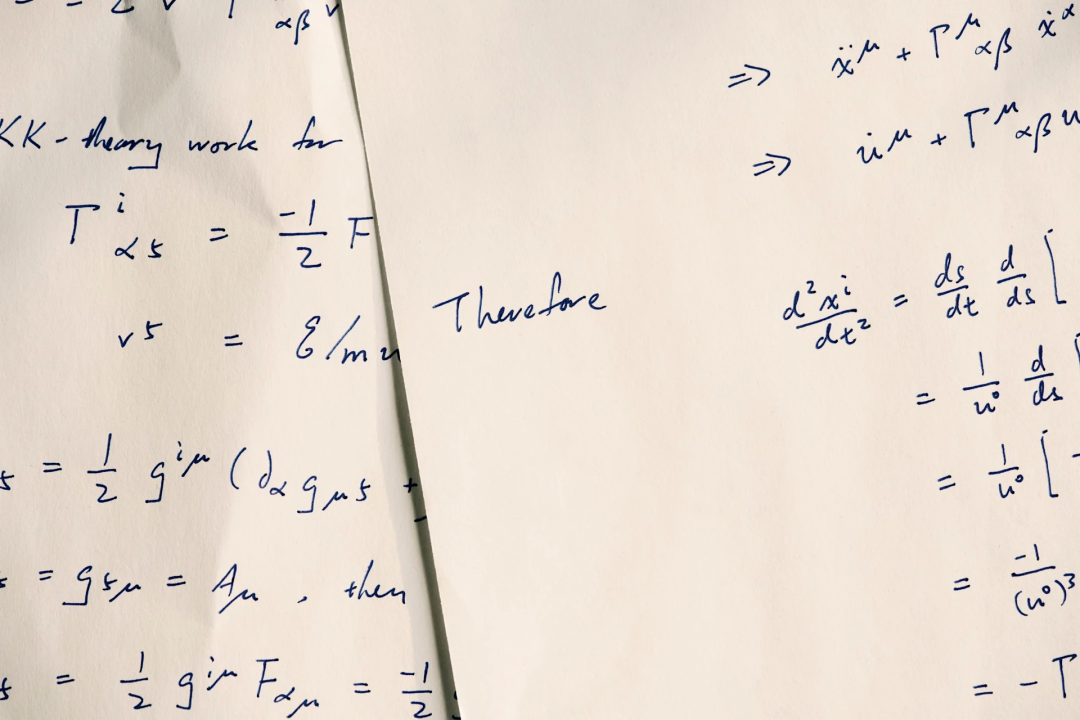 αβ
KK-theory work for
Γ^i_{α5} = -1/2 F
v^5 = ℰ/m
5 = 1/2 g^{iμ} (∂_α g_{μ5} +
= g_{5μ} = A_μ , then
5 = 1/2 g^{iμ} F_{αμ} = -1/2
⇒ ẍ^μ + Γ^μ_{αβ} ẋ^α
⇒ u̇^μ + Γ^μ_{αβ} u
Therefore
d²x^i/dt² = ds/dt d/ds [
= 1/u⁰ d/ds
= 1/u⁰ [
= -1/(u⁰)³
= - Γ